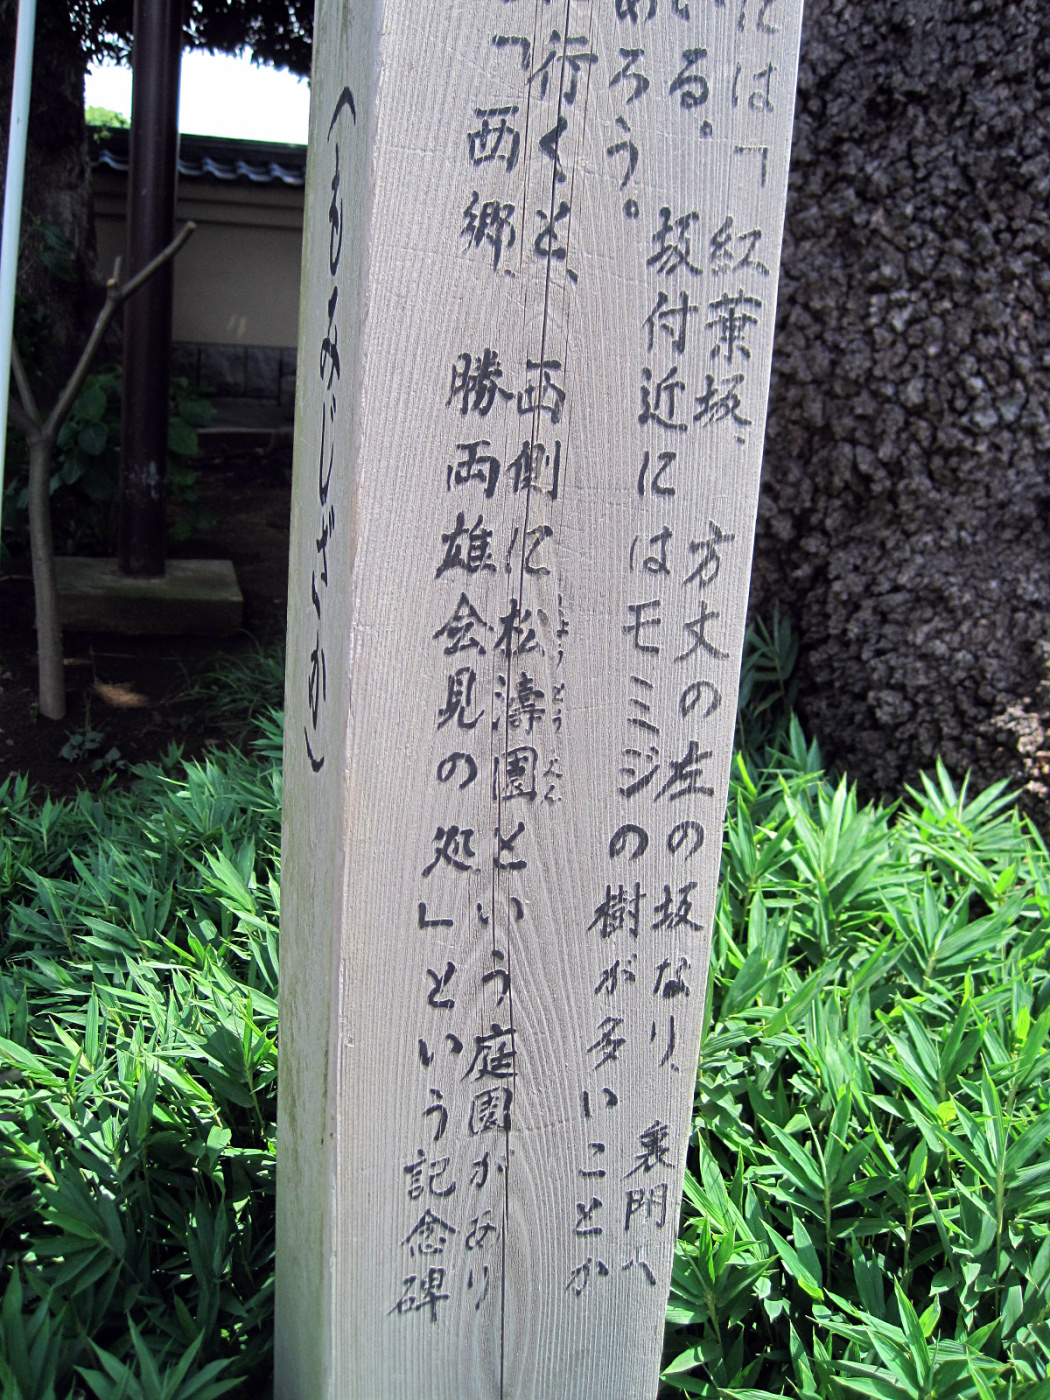 には「紅葉坂、方丈の左の坂なり、裏門へ
いる。坂付近にはモミジの樹が多いことか
あろう。
行くと、西側に松濤園という庭園があり
しょうとうえん
「西郷、勝両雄会見の処」という記念碑
(もみじざか)